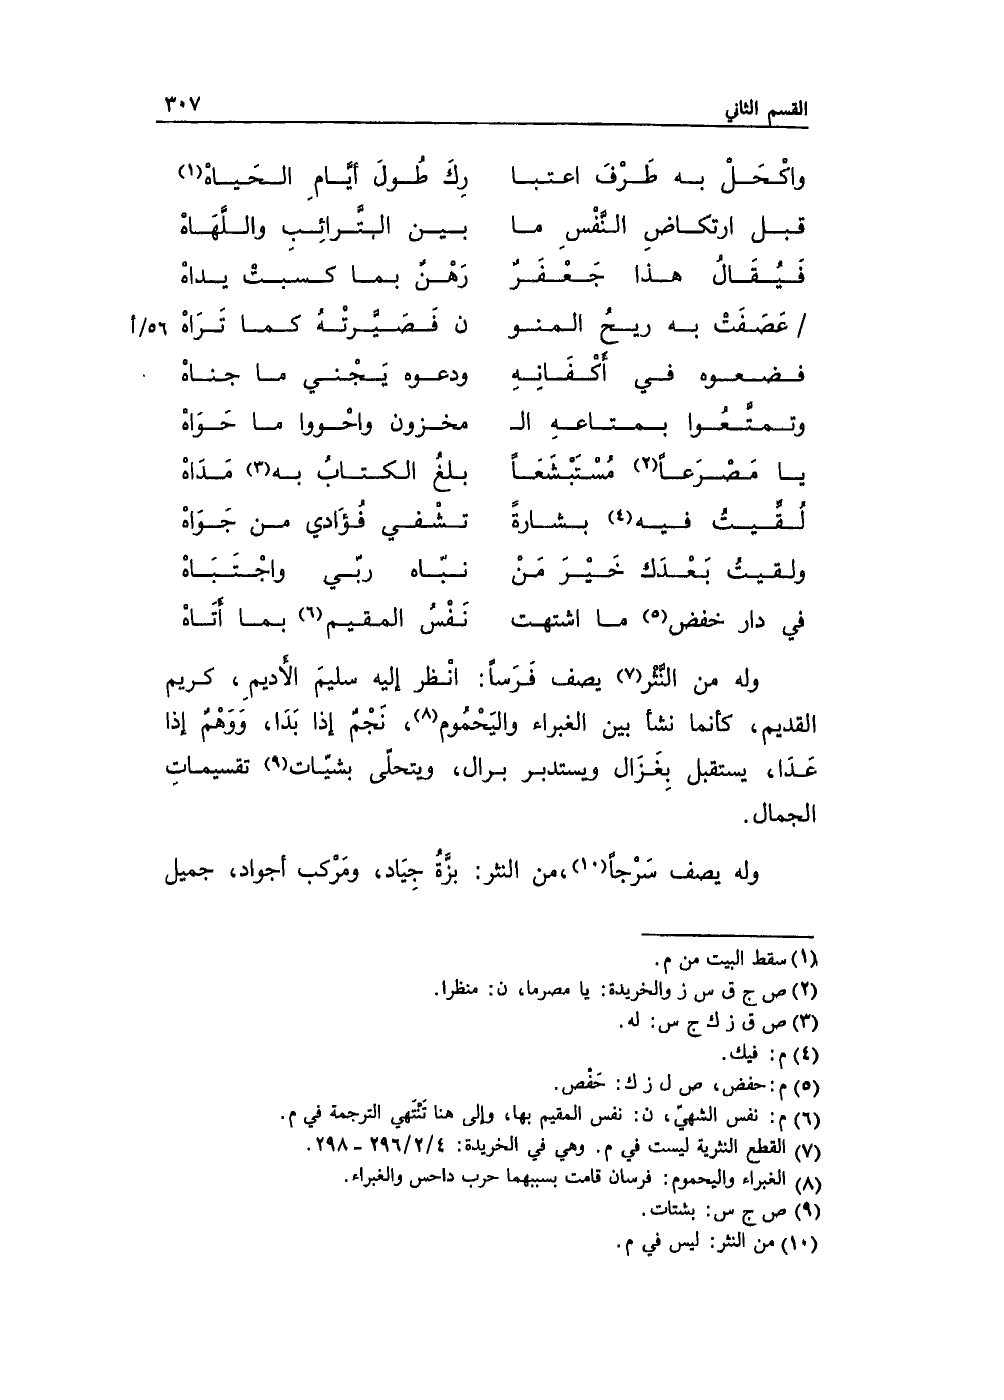 القسم الثاني ٣٠٧
واكْحَلْ به طَرْفَ اعتبا رِكَ طُولَ أيَّامِ الحَياهْ(١)
قبل ارتكاضِ النَّفْسِ ما بين التَّرائِبِ واللَّهَاهْ
فَيُقَالُ هذا جَعْفَرٌ رَهْنٌ بما كسبتْ يداهْ
/ عَصَفَتْ به ريحُ المنو ن فَصَيَّرتْهُ كما تَرَاهْ ٥٦/أ
فضعوه في أَكْفَانِهِ ودعوه يَجْني ما جناهْ
وتمتَّعُوا بمتاعه الـ مخزون واحْووا ما حَوَاهْ
يا مَصْرَعاً(٢) مُسْتَبْشَعَاً بلغُ الكتابُ به(٣) مَدَاهْ
لُقِّيتُ فيه(٤) بشارةً تشْفي فُؤَادي من جَوَاهْ
ولقيتُ بَعْدَك خَيْرَ مَنْ نبّاه ربّي واجْتَبَاهْ
في دار خفض(٥) ما اشتهت نَفْسُ المقيم(٦) بما أَتَاهْ
وله من النَّثْر(٧) يصف فَرَساً: انْظر إليه سليمَ الأديمِ، كريم
القديم، كأنما نشأ بين الغبراء واليَحْمُوم(٨)، نَجْمٌ إذا بَدَا، وَوَهْمٌ إذا
عَدَا، يستقبل بِغَزَال ويستدبر برال، ويتحلّى بشيّات(٩) تقسيماتِ
الجمال.
وله يصف سَرْجاً(١٠)،من النثر: بزَّةُ جِيَاد، ومَرْكب أجواد، جميل
(١) سقط البيت من م.
(٢) ص ج ق س ز والخريدة: يا مصرما، ن: منظرا.
(٣) ص ق ز ك ج س: له.
(٤) م: فيك.
(٥) م: حفض، ص ل ز ك: حَفْص.
(٦) م: نفس الشهيّ، ن: نفس المقيم بها، وإلى هنا تَنْتَهي الترجمة في م.
(٧) القطع النثرية ليست في م. وهي في الخريدة: ٢٩٦/٢/٤ ـ ٢٩٨.
(٨) الغبراء واليحموم: فرسان قامت بسببهما حرب داحس والغبراء.
(٩) ص ج س: بشتات.
(١٠) من النثر: ليس في م.